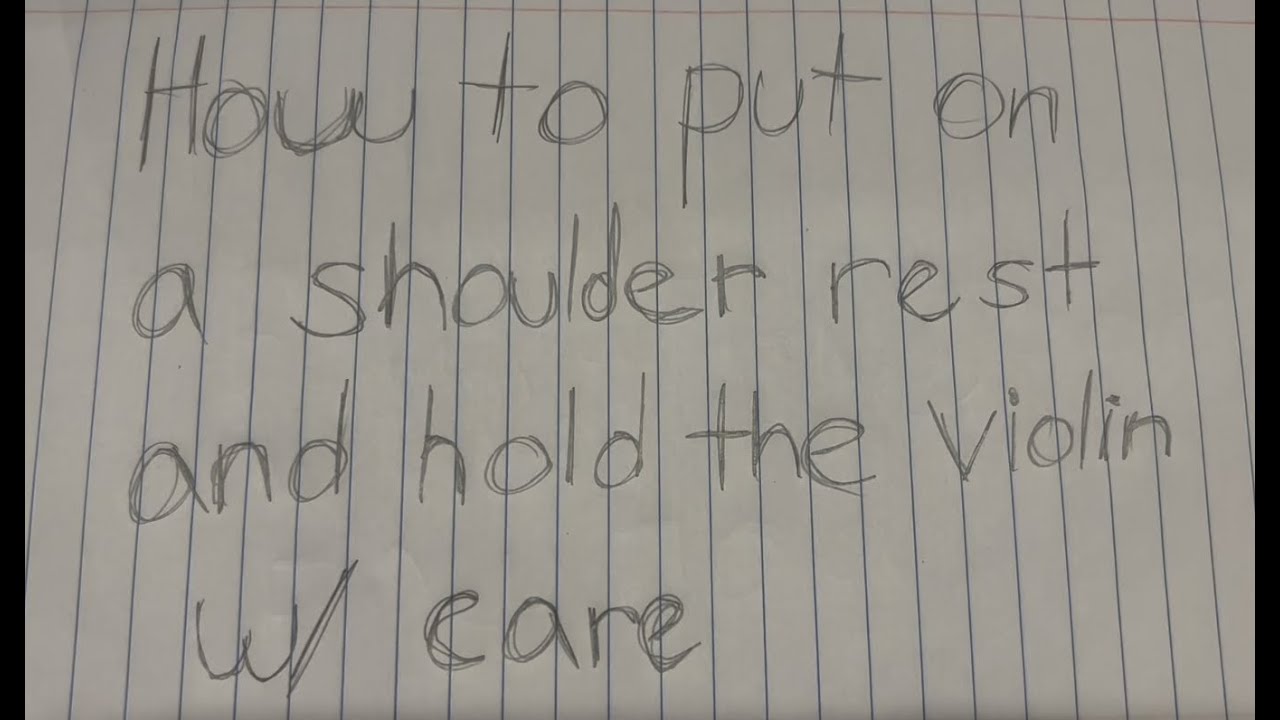 How to put on
a shoulder rest
and hold the violin
w/ care